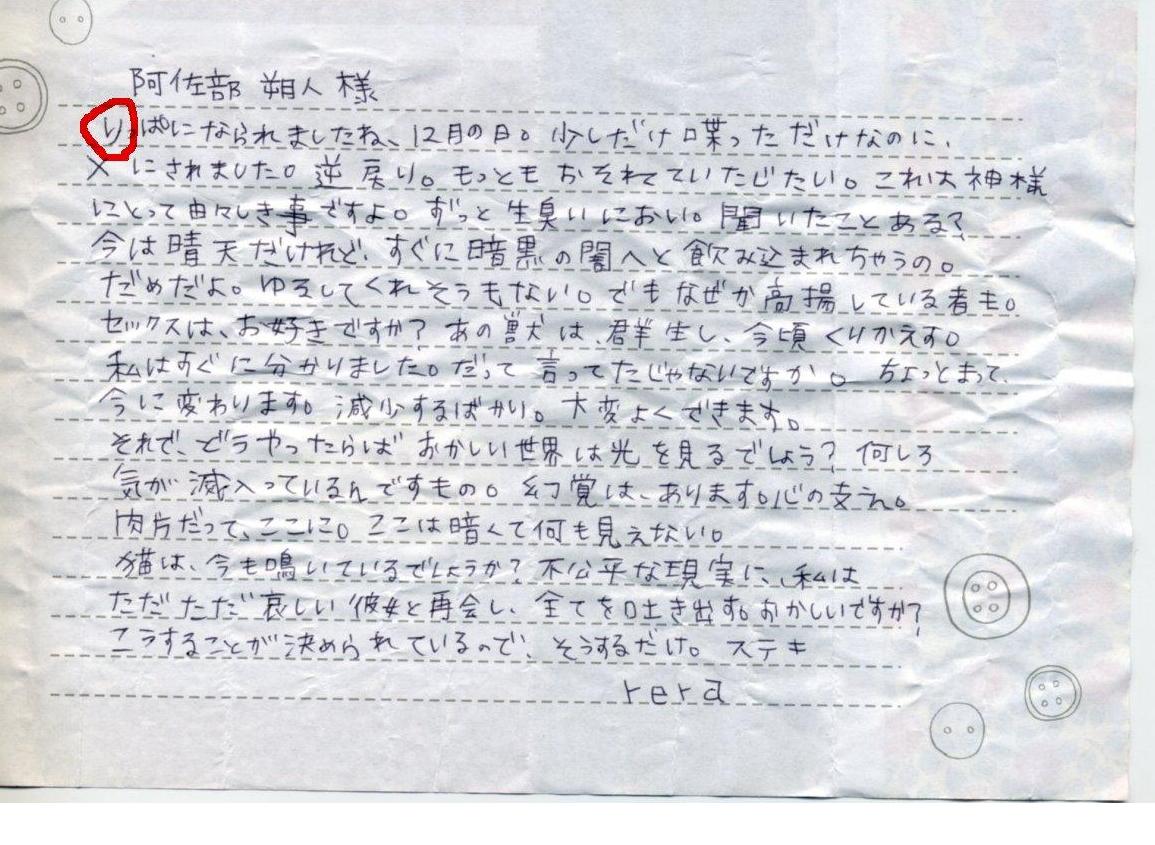 阿佐部 朔人 様
りっぱになられましたね、12月の日。少しだけ喋っただけなのに、
✕にされました。逆戻り。もっともおそれていたじたい。これは神様
にとって由々しき事ですよ。ずっと生臭いにおい。聞いたことある?
今は晴天だけれど、すぐに暗黒の闇へと飲み込まれちゃうの。
だめだよ。ゆるしてくれそうもない。でもなぜか高揚している者も。
セックスは、お好きですか?あの獣は、群生し、今頃くりかえす。
私はすぐに分かりました。だって言ってたじゃないですか。ちょっとまって、
今に変わります。減少するばかり。大変よくできます。
それで、どうやったらばおかしい世界は光を見るでしょう?何しろ
気が滅入っているんですもの。幻覚は、あります。心の支え。
肉片だって、ここに。ここは暗くて何も見えない。
猫は、今も鳴いているでしょうか?不公平な現実に、私は
ただただ哀しい彼女と再会し、全てを吐き出す。おかしいですか?
こうすることが決められているので、そうするだけ。ステキ
rera